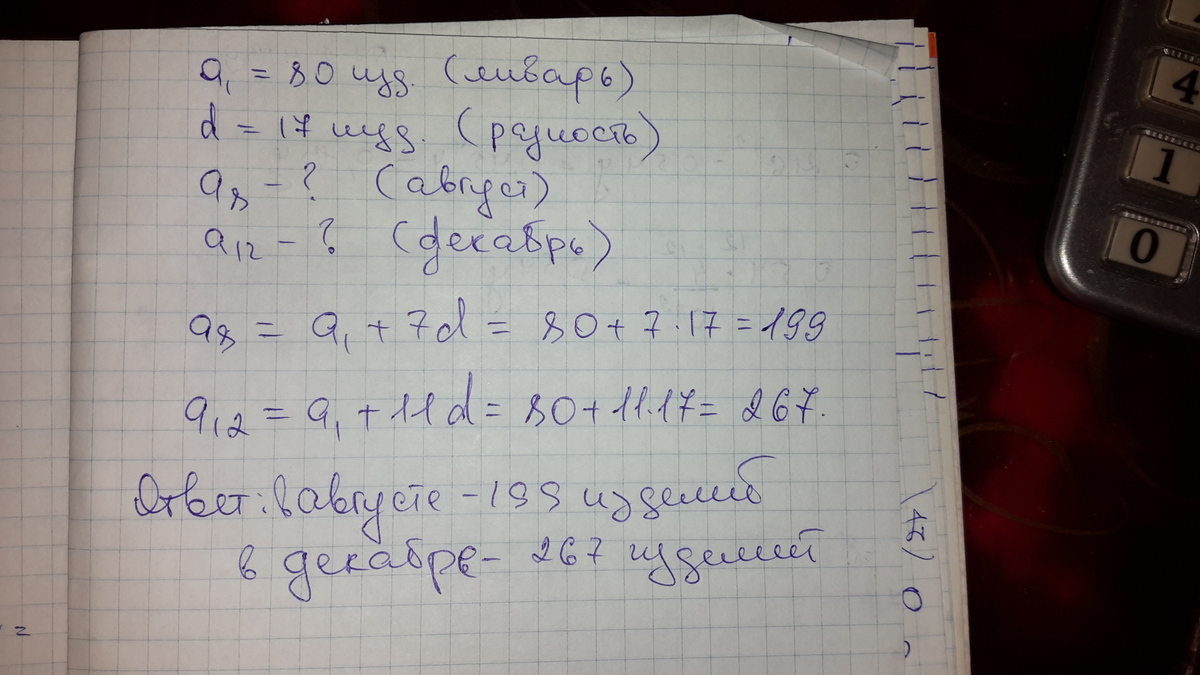 a₁ = 80 изд. (январь)
d = 17 изд. (разность)
a₈ - ? (август)
a₁₂ - ? (декабрь)
a₈ = a₁ + 7d = 80 + 7·17 = 199
a₁₂ = a₁ + 11d = 80 + 11·17 = 267.
Ответ: в августе - 199 изделий
в декабре - 267 изделий
4
1
0
17) 0
=